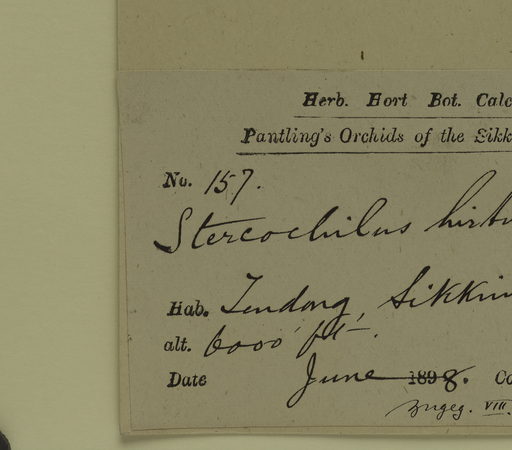 Herb. Hort Bot. Calc
Pantling's Orchids of the Sikk
No. 157.
Stereochilus hirtu
Hab. Tendong, Sikkim
alt. 6000' ft.
Date June 1898. Co
zugeg. VIII.